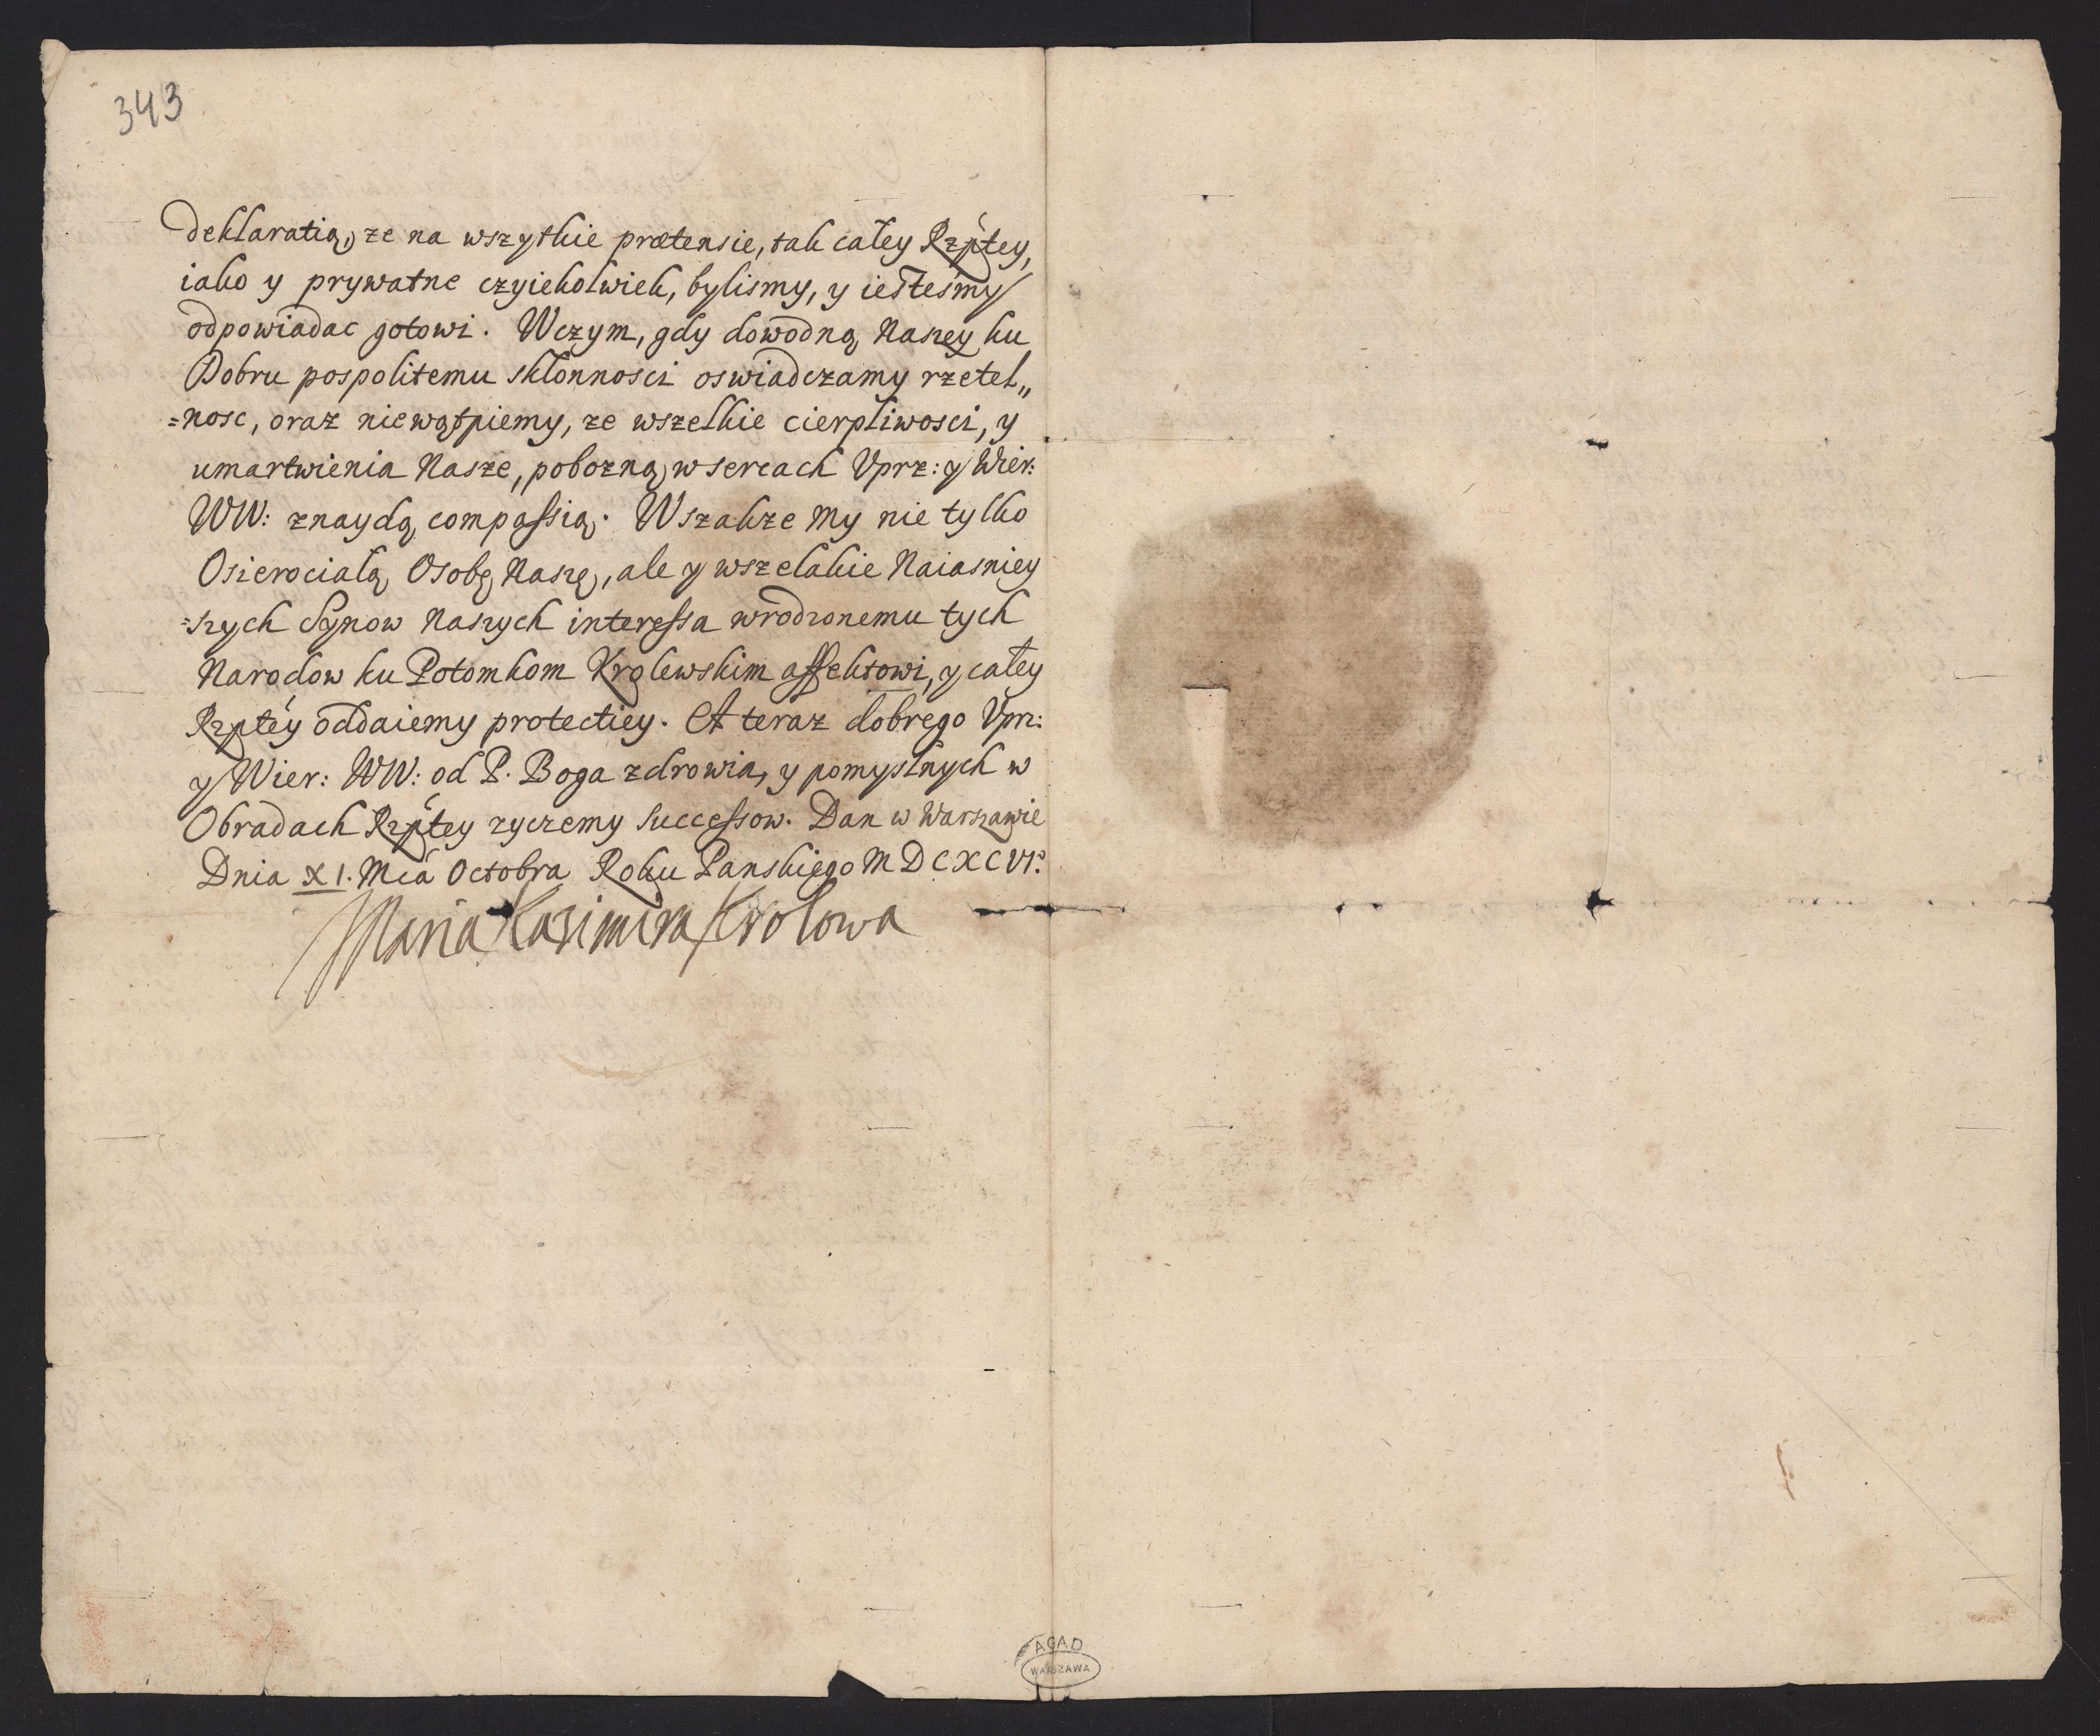 343
deklaratią, ze na wszytkie prætensie, tak całey Rzptey,
iako y prywatne czyiekolwiek, bylismy, y iesteśmy
odpowiadac gotowi. Wczym, gdy dowodną Naszey ku
Dobru pospolitemu skłonnosci oswiadczamy rzetel„
=nosc, oraz niewątpiemy, ze wszelkie cierpliwosci, y
umartwienia Nasze, pobozną w sercach Vprz: y Wier:
WW: znaydą compassią. Wszakze My nie tylko
Osierociałą Osobę Naszę, ale y wszelakie Naiasniey
=szych Synow Naszych interessa wrodzonemu tych
Narodow ku Potomkom Krolewskim affektowi, y całey
Rzptéy oddaiemy protectiey. A teraz dobrego Vprz:
y Wier: WW: od P. Boga zdrowia, y pomyslnych w
Obradach Rzptey zyczemy successow. Dan w Warszawie
Dnia XI. Mcá Octobra Roku Panskiego MDCXCVI°.
Maria Kazimira Krolowa
AGAD
WARSZAWA